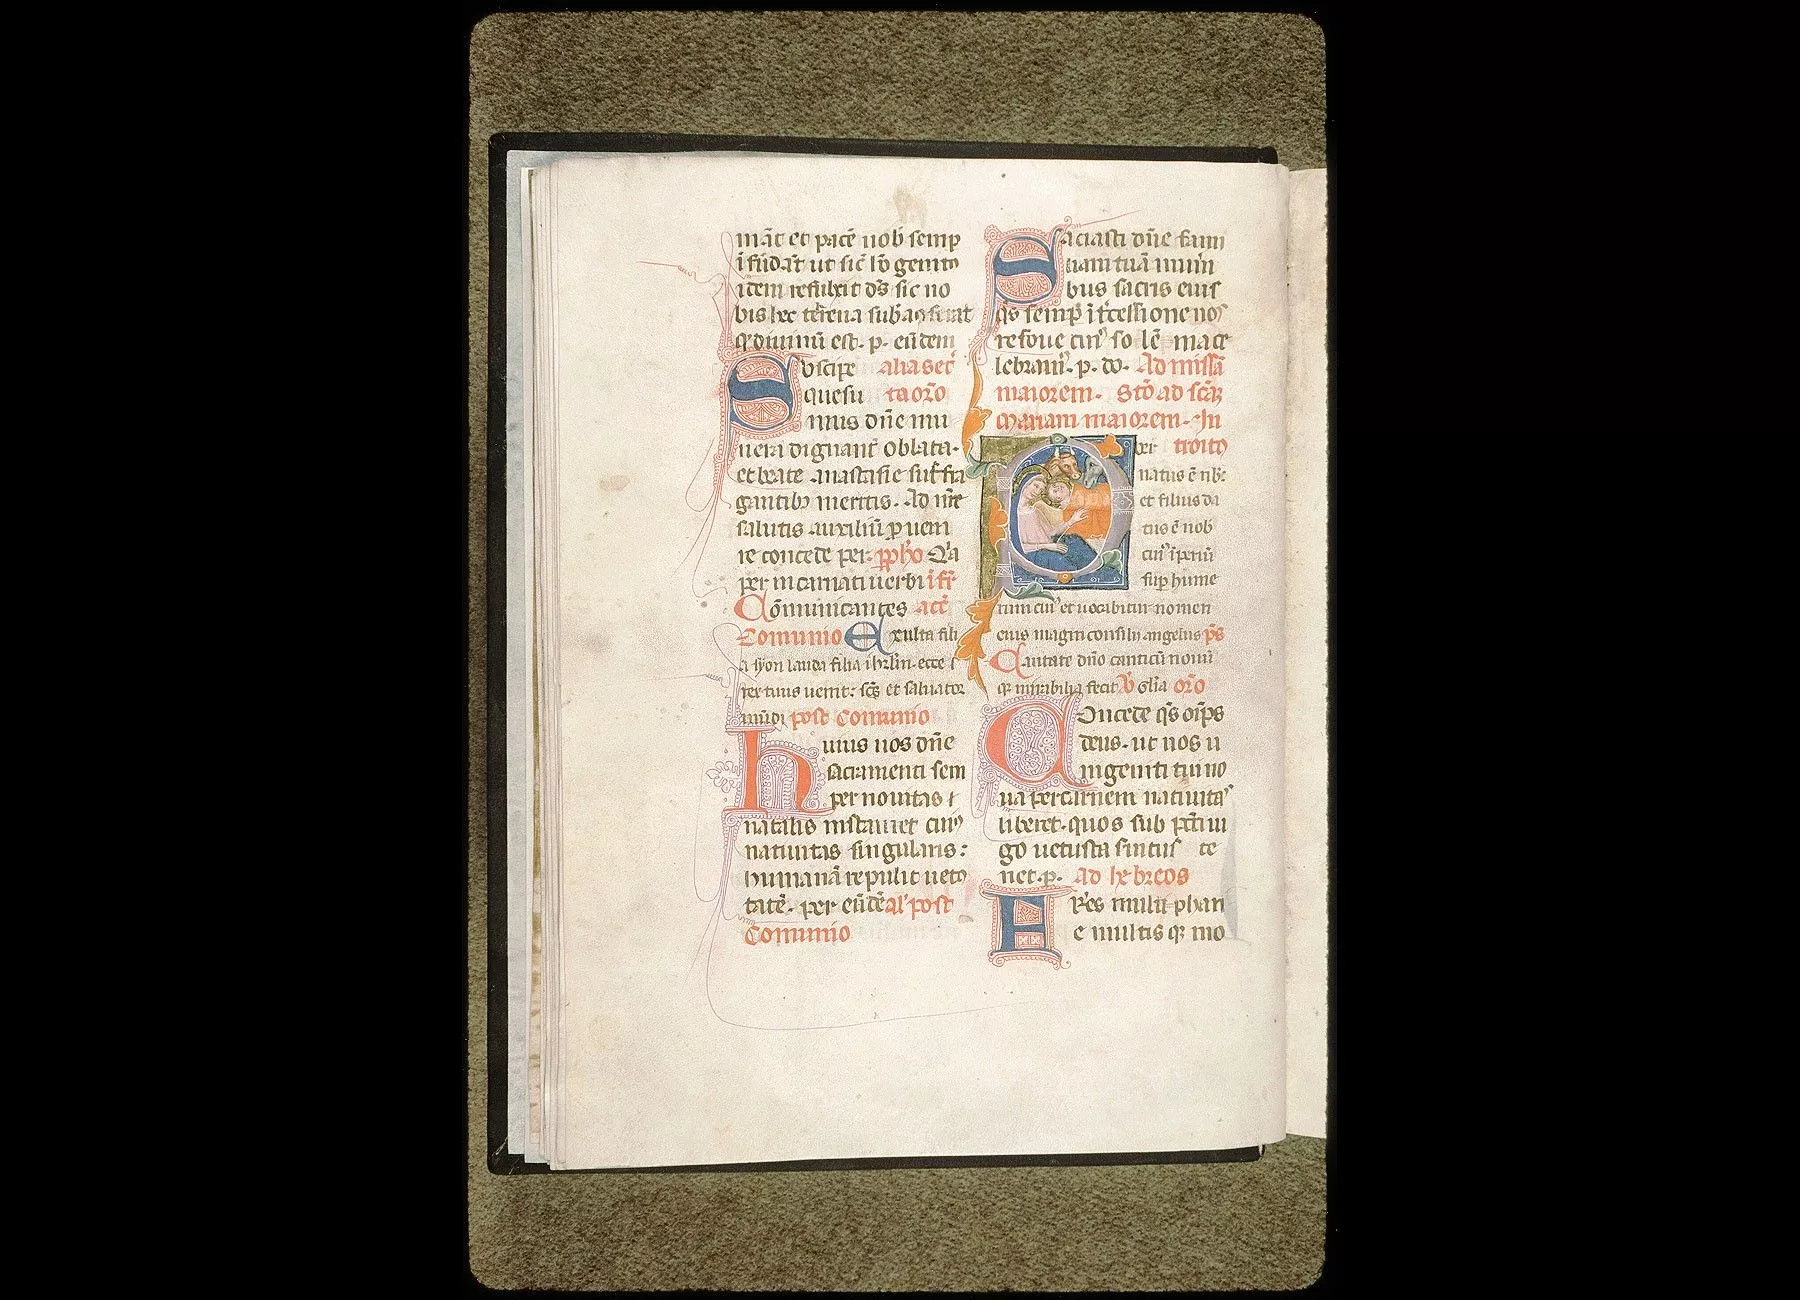 māt et pacē nob semp
ī fūdat ut sic h̄ genito
idem refulxit ds sic no
bis hec terrena sub
qđ diuinū est. p. eūdem
Suscipe alia secr
quesu ta oro
mus dn̄e mu
nera dignant oblata.
et beate anastasie suffra
gantibꝫ meritis. Ad nr̄e
salutis auxiliū ꝓuen
re concede per. Q̄a
per incarnati uerbi
Cōmunicantes
Comunio Exulta fili
a syon lauda filia ihrlm̄. ecce r
rex tuus uenit: scs̄ et saluator
mūdi post comunio
huius nos dn̄e
sacramenti sem
per nouitas
natalis instauret cuiꝰ
natiuitas singularis:
humanā repulit uetus
tatē. per eūdē al post
Comunio
Saciasti dn̄e fami
liam tuā muneri
bus sacris eius
qs̄ semp ītcessione nos
refoue cuiꝰ solēnia ce
lebramꝰ. p. do. Ad missā
maiorem. Stō ad scāꝫ
Mariam maiorem. In
Puer troito
natus ē nb̄
et filius da
tus ē nob
cuiꝰ īperiū
sup hume
rum eiꝰ et uocabitur nomen
eius magni consilij angelus ps̄
Cantate dn̄o canticū nouū
qꝫ mirabilia fecit V Gl̄ia oro
Concede qs̄ oīps
deus. ut nos u
nigeniti tui no
ua per carnem natiuitas
liberet. quos sub pcc̄ti iu
go uetusta seruitus te
net. p. Ad hebreos
Fr̄es multiphari
e multis qꝫ mo